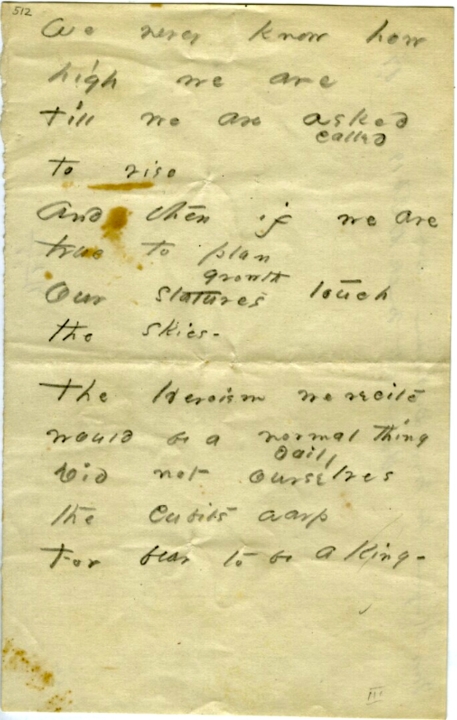 512
We never know how
high we are
till we are asked
called
to rise
And then if we are
true to plan
growth
Our statures touch
the skies -
The Heroism we recite
would be a normal thing
daily
Did not ourselves
the Cubits warp
For fear to be a King -
III